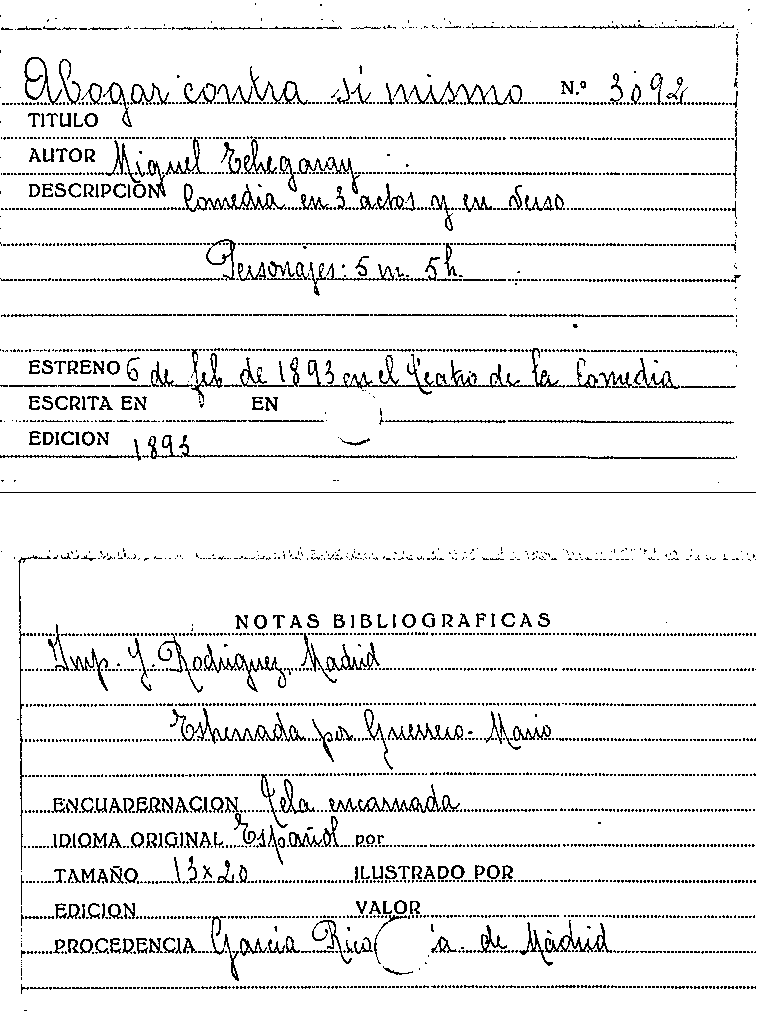 Abogar contra sí mismo N.º 3092
TITULO
AUTOR Miguel Echegaray
DESCRIPCIÓN Comedia en 3 actos y en verso
Personajes: 5 m. 5 h.
ESTRENO 6 de feb de 1893 en el Teatro de la Comedia
ESCRITA EN EN
EDICION 1893
NOTAS BIBLIOGRAFICAS
Imp. J. Rodriguez, Madrid
Estrenada por Guerrero-Mario
ENCUADERNACION Tela encarnada
IDIOMA ORIGINAL Español por
TAMAÑO 13x20 ILUSTRADO POR
EDICION VALOR
PROCEDENCIA García Rico a. de Madrid